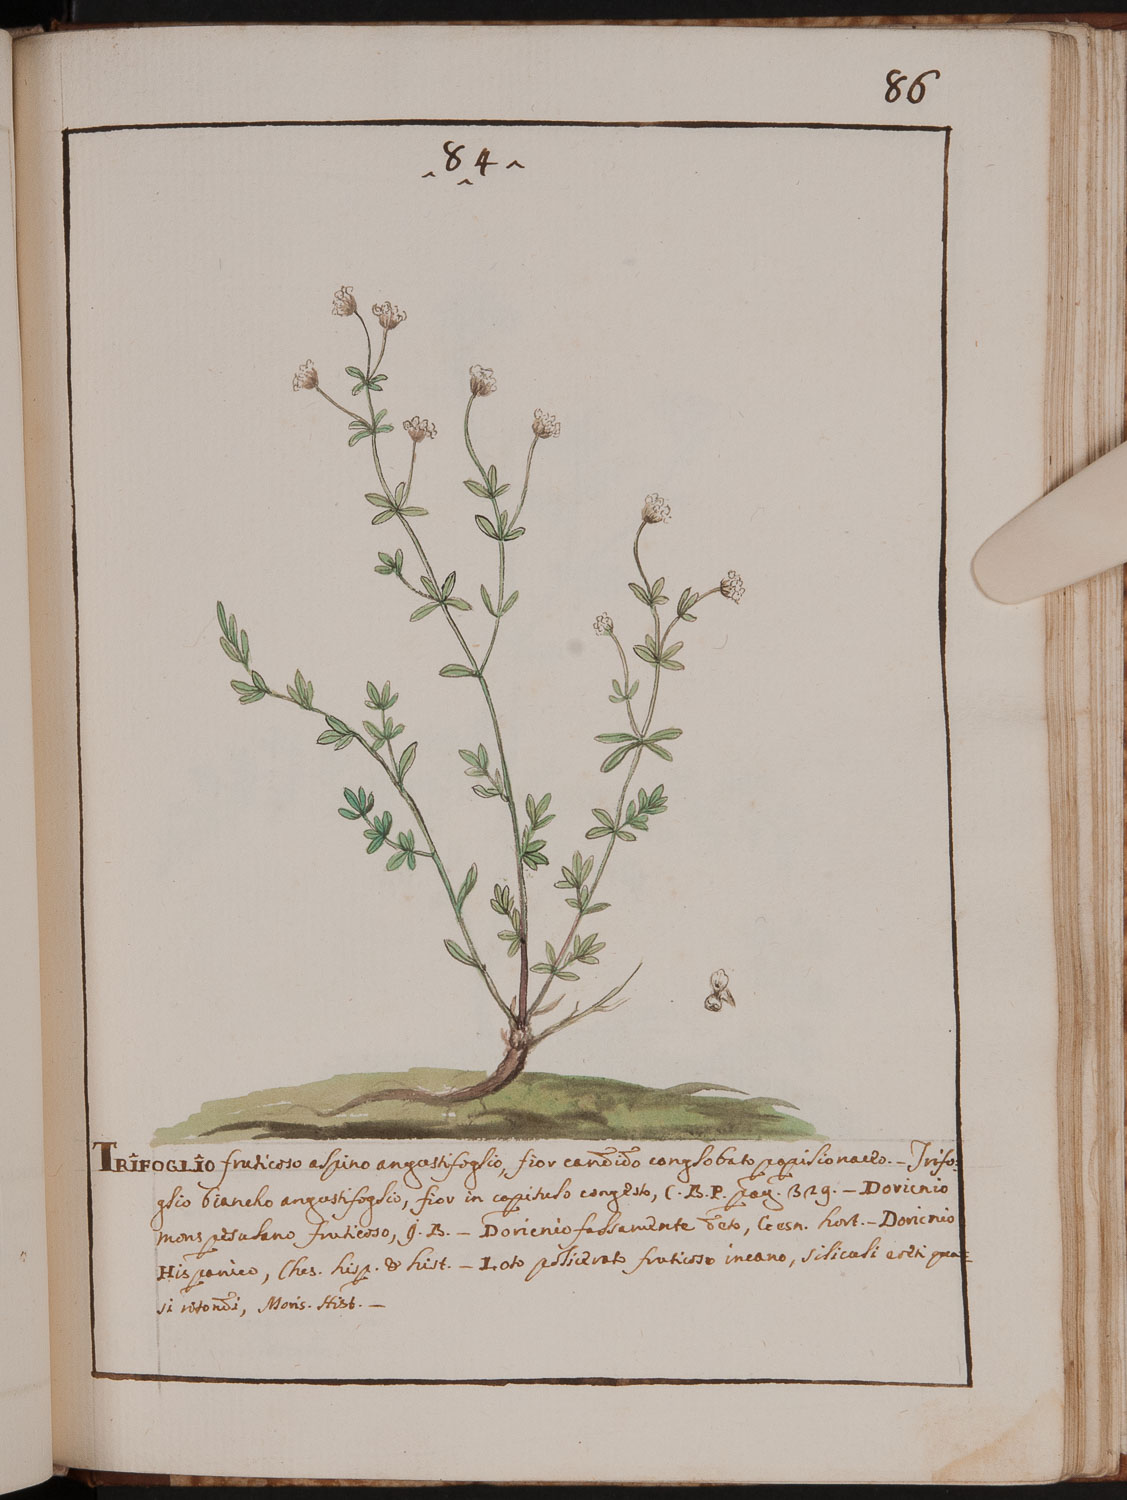 86
84
TRIFOGLIO fruticoso alpino angustifoglio, fior candido conglobato papilionaceo. – Trifo=
glio biancho angustifoglio, fior in capitulo congesto, C. B. P. pag. 329. – Doricnio
monspesulano fruticoso, J. B. – Doricnio falsamente deto, Gesn. hort. – Doricnio
Hispanico, Clus. hisp. & hist. – Loto policerato fruticoso incano, siliculi ereti qua=
si rotondi, Moris. Hist. –